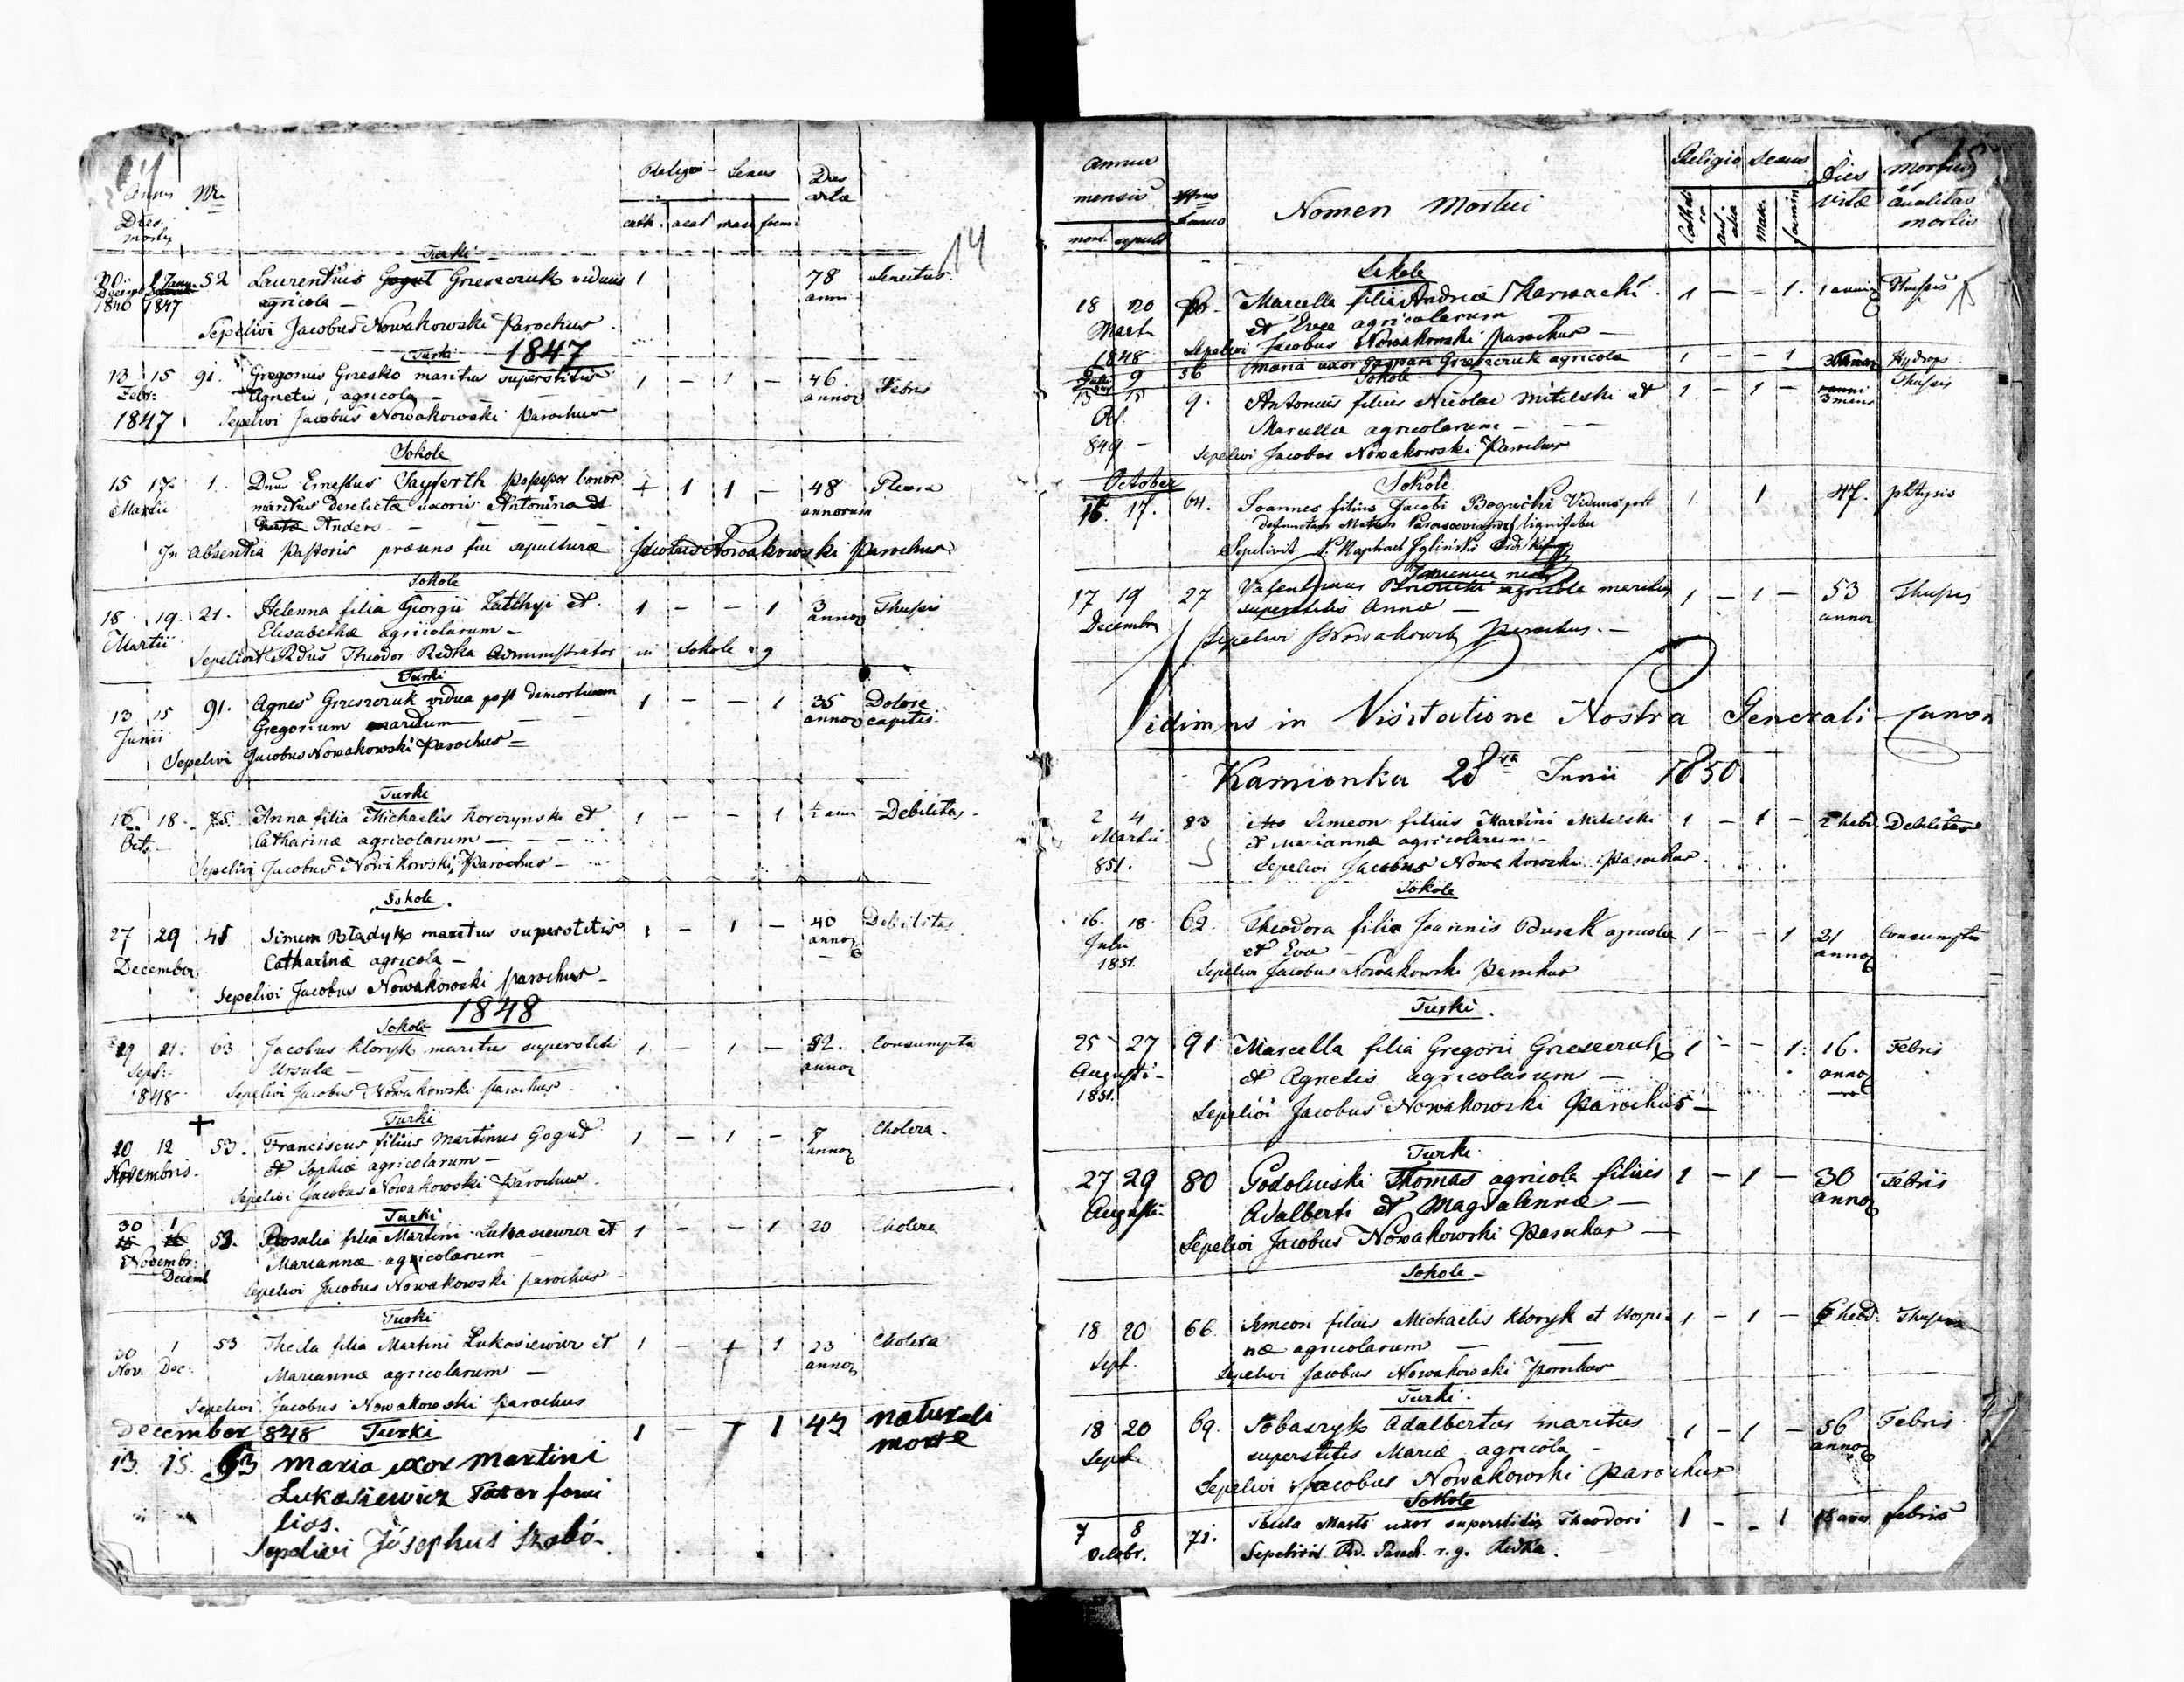 Annus Nr. Religio Sexus Dies vitæ
Dies mortis cath. acat masc foemi
14
Turki
30 Decemb 1846 1 Janu. 1847 52 Laurentius Grzeszczuk viduus 1 78 anni Senectus
agricola –
Sepelivi Jacobus Nowakowski Parochus
Turki 1847
13 15 91. Gregorius Grzesko maritus superstitis 1 – 1 – 46. annor Febris
Febr: Agnetis, agricola –
1847 Sepelivi Jacobus Nowakowski Parochus
Sokole
15 17 1. Dnus Ernestus Sayferth possessor bonor 1 1 – 48 annorum
Martii maritus derelicta uxoris Antonina de
Anders – – –
In absentia Pastoris præuns fui sepulturæ Jacobus Nowakowski Parochus
Sokole
18 19. 21. Helenna filia Georgii et 1 – – 1 3 annor Thusis
Martii Elisabethæ agricolarum –
Sepelivit Rdus Theodor Redka Administrator in Sokole r. g
Turki
13 15 91. Agnes Grzeszczuk vidua post demortuum 1 – – 1 35 annor Dolore capitis.
Junii Gregorium maritum – –
Sepelivi Jacobus Nowakowski Parochus –
Turki
16 18. 75. Anna filia Michaelis Korczynski et 1 – – 1 ½ ann Debilitas
Octb. Catharinæ agricolarum – – –
Sepelivi Jacobus Nowakowski, Parochus –
Sokole.
27 29 45 Simeon Bladyk maritus superstitis 1 – 1 – 40 annor Debilitas
December Catharinæ agricola –
Sepelivi Jacobus Nowakowski parochus –
Sokole 1848
19 21. 63. Jacobus Kloryk maritus superstiti 1 – 1 – 52. annor Consumpta
Sept. Ursulæ –
1848 Sepelivi Jacobus Nowakowski parochus.
Turki
10 12 53. Franciscus filius Martinus Gogut 1 – 1 – 5 annor Cholera.
Novembris. et Sophiæ agricolarum –
Sepelivi Jacobus Nowakowski Parochus
Turki
30 1 53. Rosalia filia Martini Lukasiewicz et 1 – – 1 20 Cholera
Novembr: Decemb Mariannæ agricolarum –
Sepelivi Jacobus Nowakowski parochus
Turki
30 1 53 Thecla filia Martini Lukasiewicz et 1 – 1 23 annor Cholera
Nov. Dec. Mariannæ agricolarum –
Sepelivi Jacobus Nowakowski parochus
December 848 Turki 1 – 1 43 naturali morte
13. 15. 53 Maria uxor Martini
Lukasiewicz Pater fami
lias.
Sepelivi Jósephus Szabó.
Annus mensis Nrus Domus Nomen Mortui Religio Sexus Dies Vitæ Morbus et Qualitas mortis
mort. sepult Catholi ca aut. alia Mas. fœmin
Sokole
18 20 Marcella filia Andreæ Karwacki 1 – – 1. 1 anni Thusis
Mart. et Evæ agricolarum
1848 Sepelivi Jacobus Nowakowski parochus –
9 56 Maria uxor Gaspari Grzeszczuk agricola 1 – – 1 Hydrops
Sokole
13 15 9. Antonius filius Nicolai Mitelski et 1 – 1 – 3 mens Thusis
Marcellæ agricolarum – –
849 – Sepelivi Jacobus Nowakowski Parochus
October Sokole
16. 17. 64. Joannes filius Jacobi Bogucki Viduus post 1. 1 47. phtysis
defunctam
Sepelivit P. Raphael
17 19 27 Valentinus agricola maritus 1 – 1 – 53 annor Thusis
Decembr superstitis Annæ –
Sepelivi JNowakowski Parochus. –
Vidimus in Visitatione Nostra Generali Canon
Kamionka 28va Junii 1850
2 4 83 Simeon filius Martini Mitelski 1 – 1 – 2 hebd. Debilitas
Martii et Mariannæ agricolarum –
851. Sepelivi Jacobus Nowakowski Parochus.
Sokole
16. 18. 62. Theodora filia Joannis Burak agricola 1 – – 1 21 annor Consumptio
Julii et Eva –
1851. Sepelivi Jacobus Nowakowski Parochus
Turki.
25 27 91 Marcella filia Gregorii Grzeszczuk 1 – – 1. 16. annor Febris
Augusti – et Agnetis agricolarum –
1851. Sepelivi Jacobus Nowakowski Parochus –
Turki
27 29 80 Godoluiski Thomas agricola filius 1 – 1 – 30 annor Febris
Augusti Adalberti et Magdalennæ –
Sepelivi Jacobus Nowakowski Parochus –
Sokole –
18 20 66. Simeon filius Michaëlis Kloryk et Horpi- 1 – 1 – 6 hebd. Thusis
Sept. næ agricolarum –
Sepelivi Jacobus Nowakowski Parochus
Turki.
18 20 69. Sobaszryk Adalbertus maritus 1 – 1 – 56 annor Febris
Sept. superstitis Mariæ agricola –
Sepelivi Jacobus Nowakowski Parochus
Sokole
7 8 71. Thecla uxor superstitis Theodori 1 – – 1 febris
Octobr. Sepelivit Rd. Paroch. r. g. Redka.